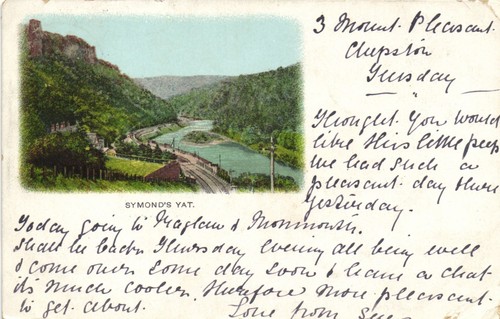 3 Mount Pleasant
Chepstow
Tuesday
Thought You Would
like this little peep
We had such a
pleasant day there
Yesterday.
SYMOND'S YAT.
Today going to Raglan & Monmouth.
shall be back Thursday evening all being well
& come over some day soon & have a chat
its much cooler, therefore more pleasant
to get about.
Love from